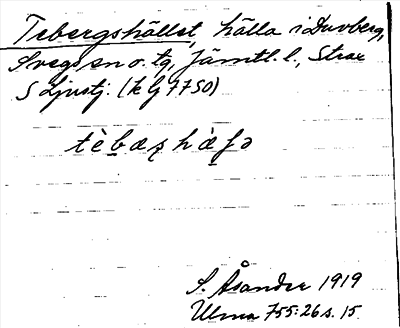 Tebergshället, hälla i Duvberg,
Svegs sn o. tg, Jämtl. l., Strax
S Ljustj. (k lj 7750)
tèbaʂhàʃə
S. Åsander 1919
Ulma 755:26 s. 15